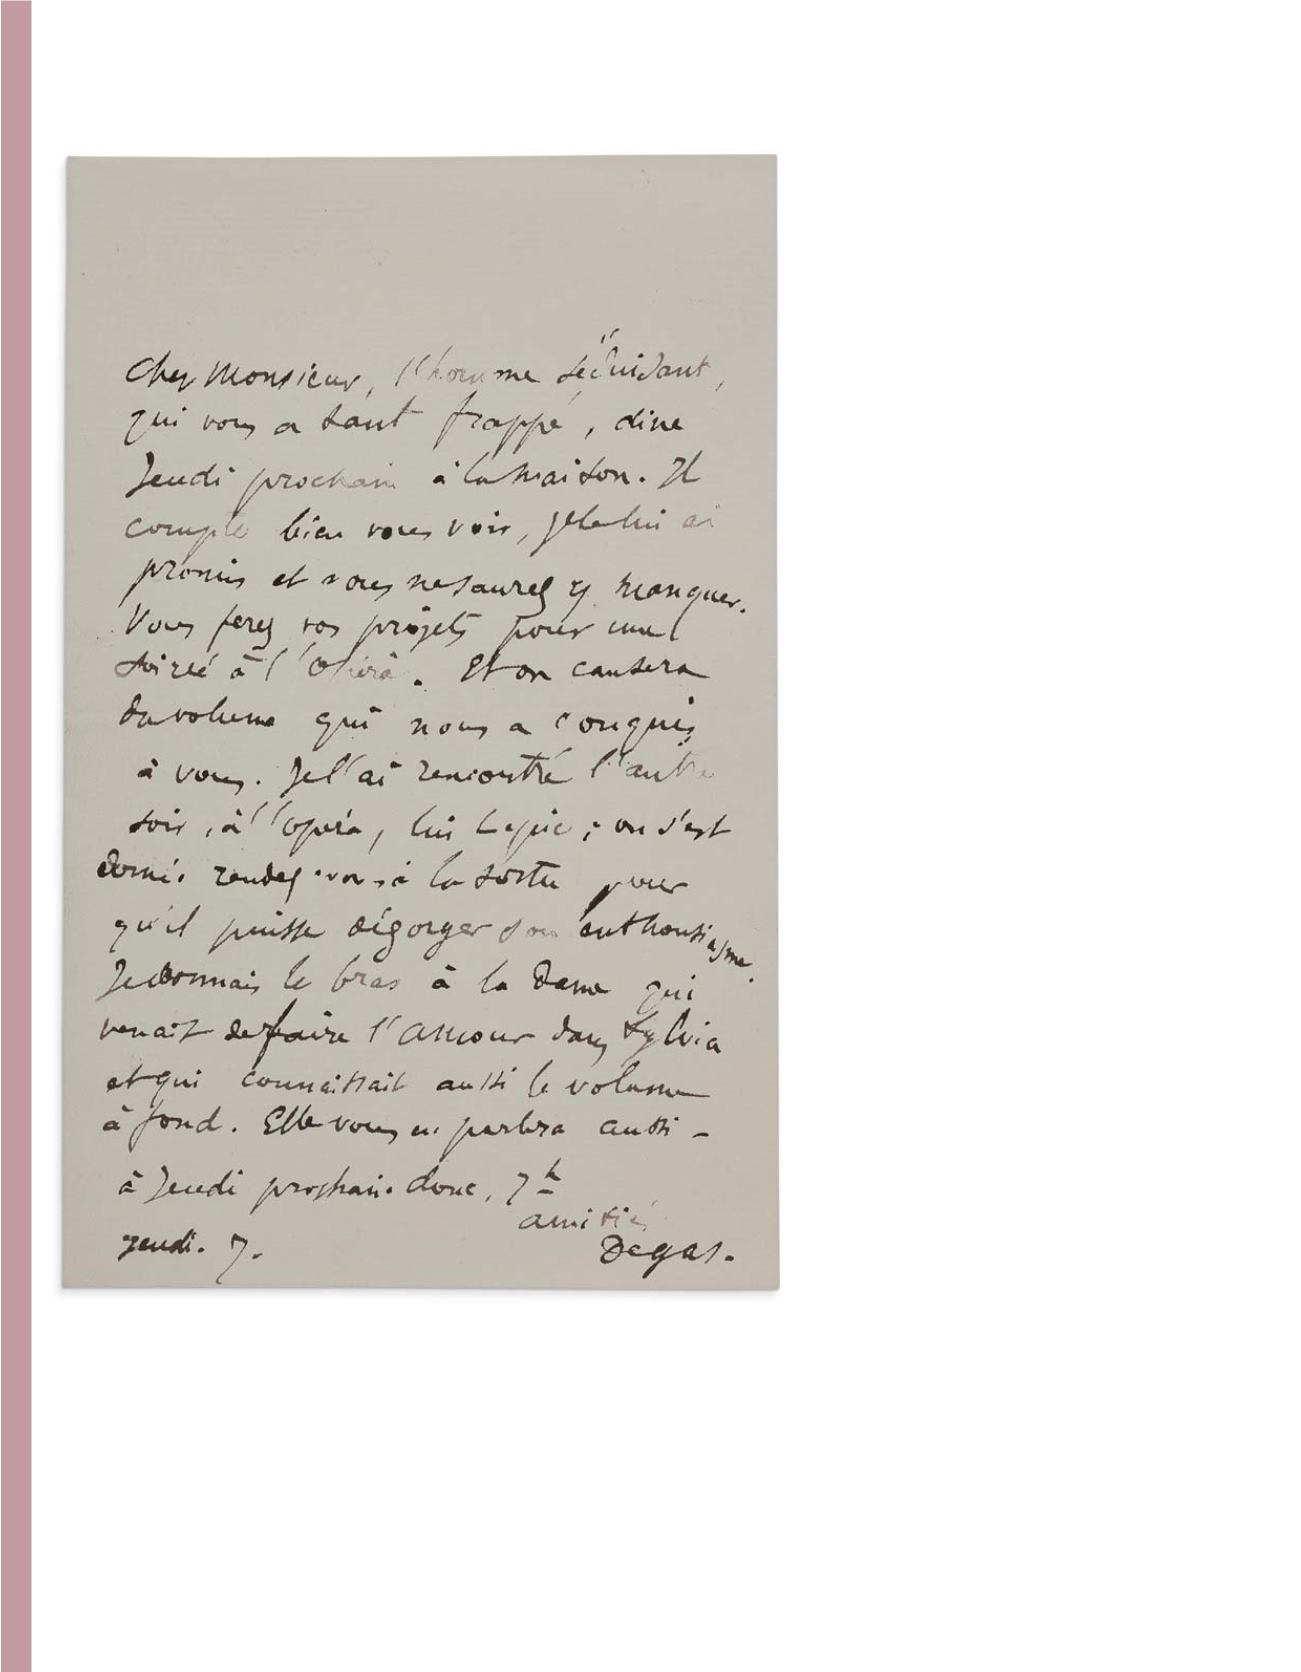 Cher Monsieur, l'homme séduisant,
qui vous a tant frappé, dine
Jeudi prochain à la maison. Il
compte bien vous voir, je le lui ai
promis et vous ne saurez y manquer.
Vous ferez vos projets pour une
soirée à l'Opéra. Et on causera
du volume qui nous a conquis
à vous. Je l'ai rencontré l'autre
soir, à l'opéra, lui Lepic ; on s'est
donné rendez-vous à la sortie pour
qu'il puisse dégorger son enthousiasme.
Je donnais le bras à la Dame qui
venait de faire l'amour dans Sylvia
et qui connaissait aussi le volume
à fond. Elle vous en parlera aussi -
à Jeudi prochain donc, 7h
amitiés
Jeudi. 7. Degas.